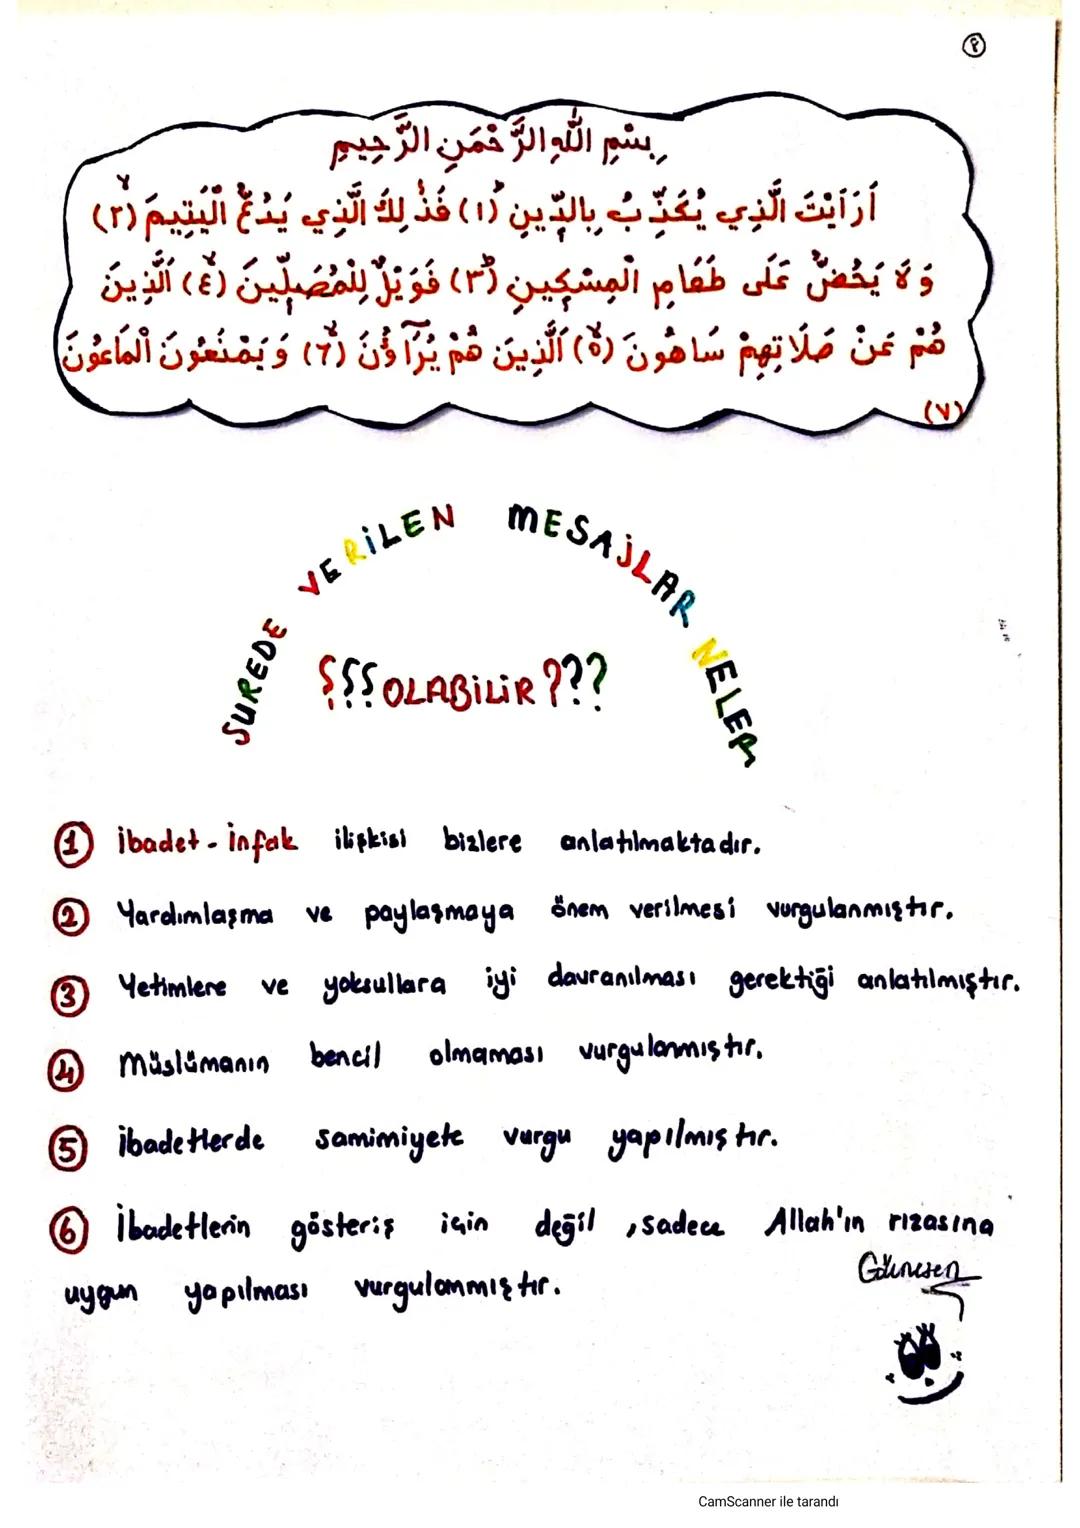 بِسْمِ اللّٰهِ الرَّحْمَنِ الرَّحِيمِ
اَرَاَيْتَ الَّذِي يُكَذِّبُ بِالدِّينِ (١) فَذٰلِكَ الَّذِي يَدُعُّ الْيَتِيمَ (٢)
وَلَا يَحُضُّ عَلَى طَعَامِ الْمِسْكِينِ (٣) فَوَيْلٌ لِلْمُصَلِّينَ (٤) اَلَّذِينَ
هُمْ عَنْ صَلَاتِهِمْ سَاهُونَ (٥) اَلَّذِينَ هُمْ يُرَآؤُنَ (٦) وَيَمْنَعُونَ الْمَاعُونَ
(٧)
SUREDE VERİLEN MESAJLAR NELER
OLABİLİR ???
1 İbadet - İnfak ilişkisi bizlere anlatılmaktadır.
2 Yardımlaşma ve paylaşmaya önem verilmesi vurgulanmıştır.
3 Yetimlere ve yoksullara iyi davranılması gerektiği anlatılmıştır.
4 Müslümanın bencil olmaması vurgulanmıştır.
5 İbadetlerde samimiyete vurgu yapılmıştır.
6 İbadetlerin gösteriş için değil, sadece Allah'ın rızasına
uygun yapılması vurgulanmıştır.
CamScanner ile tarandı